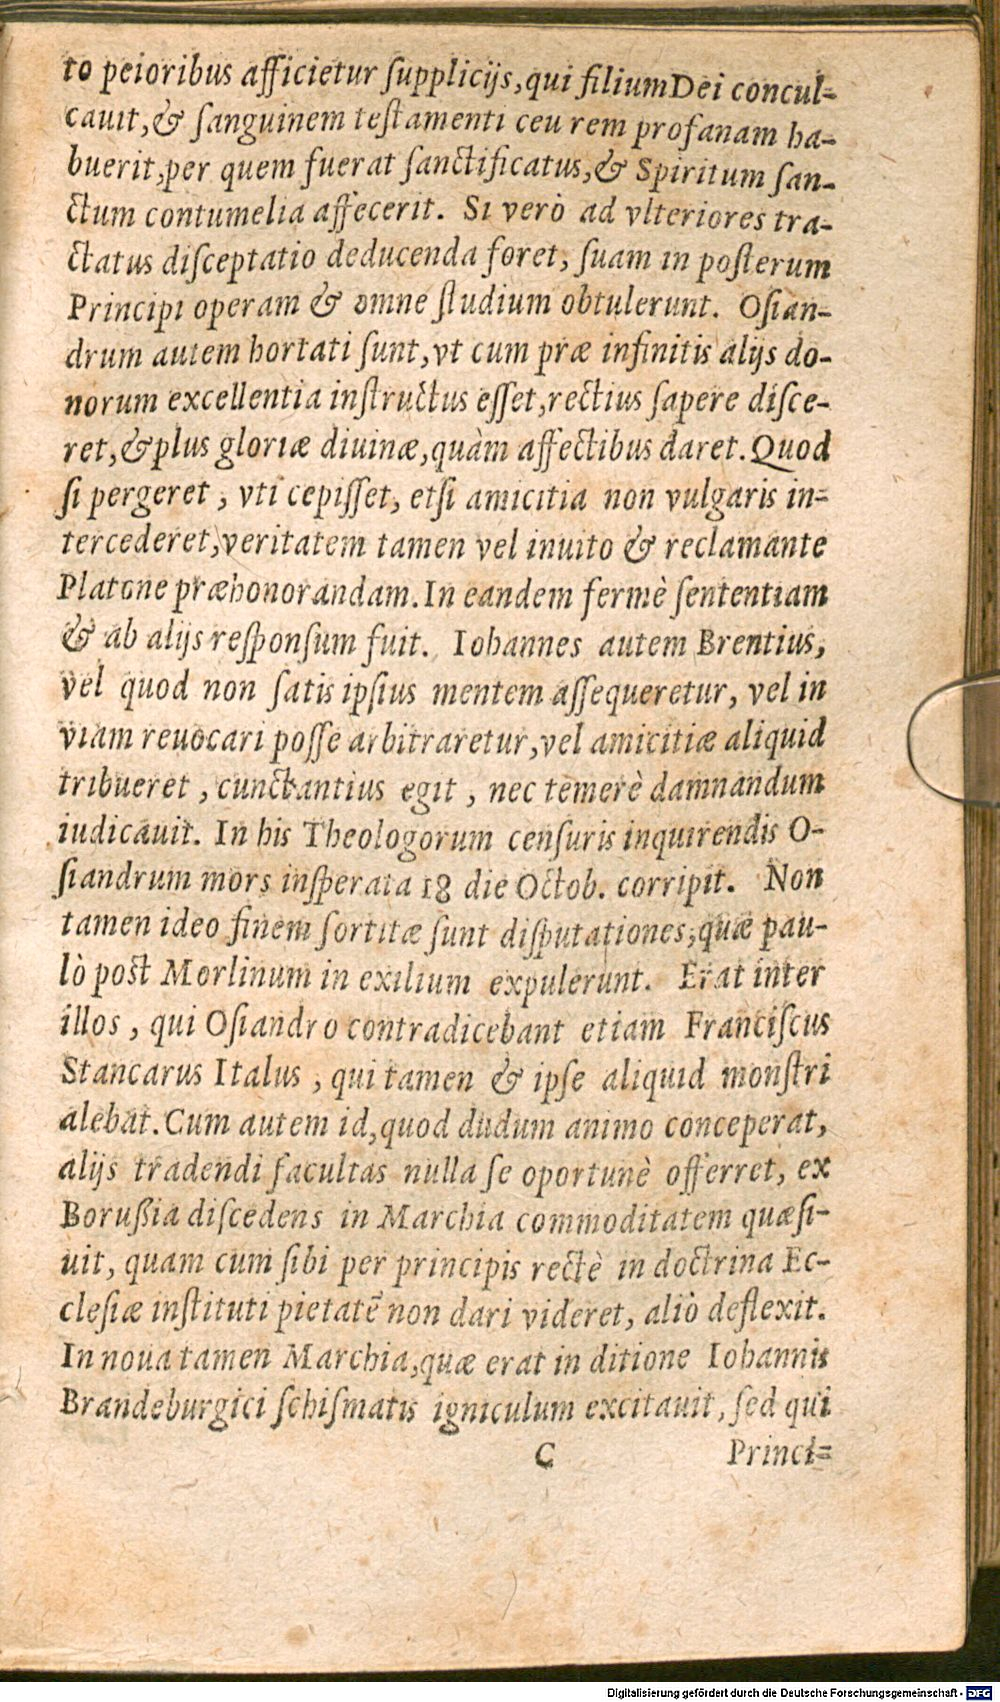 to peioribus afficietur ſupplicijs, qui filium Dei concul-
cauit, & ſanguinem teſtamenti ceu rem profanam ha-
buerit, per quem fuerat ſanctificatus, & Spiritum ſan-
ctum contumelia affecerit. Si verò ad vlteriores tra-
ctatus diſceptatio deducenda foret, ſuam in poſterum
Principi operam & omne ſtudium obtulerunt. Oſian-
drum autem hortati ſunt, vt cum præ infinitis alijs do-
norum excellentia inſtructus eſſet, rectius ſapere diſce-
ret, & plus gloriæ diuinæ, quàm affectibus daret. Quod
ſi pergeret, vti cepiſſet, etſi amicitia non vulgaris in-
tercederet, veritatem tamen vel inuito & reclamante
Platone præhonorandam. In eandem fermè ſententiam
& ab alijs reſponſum fuit. Iohannes autem Brentius,
vel quod non ſatis ipſius mentem aſſequeretur, vel in
viam reuocari poſſe arbitraretur, vel amicitiæ aliquid
tribueret, cunctantius egit, nec temerè damnandum
iudicauit. In his Theologorum cenſuris inquirendis O-
ſiandrum mors inſperata 18 die Octob. corripit. Non
tamen ideo finem ſortitæ ſunt diſputationes, quæ pau-
lò poſt Morlinum in exilium expulerunt. Erat inter
illos, qui Oſiandro contradicebant etiam Franciſcus
Stancarus Italus, qui tamen & ipſe aliquid monſtri
alebat. Cum autem id, quod dudum animo conceperat,
alijs tradendi facultas nulla ſe oportunè offerret, ex
Borußia diſcedens in Marchia commoditatem quæſi-
uit, quam cum ſibi per principis rectè in doctrina Ec-
cleſiæ inſtituti pietatē non dari videret, aliò deflexit.
In noua tamen Marchia, quæ erat in ditione Iohannis
Brandeburgici ſchiſmatis igniculum excitauit, ſed qui
C Princi-
Digitalisierung gefördert durch die Deutsche Forschungsgemeinschaft - DFG